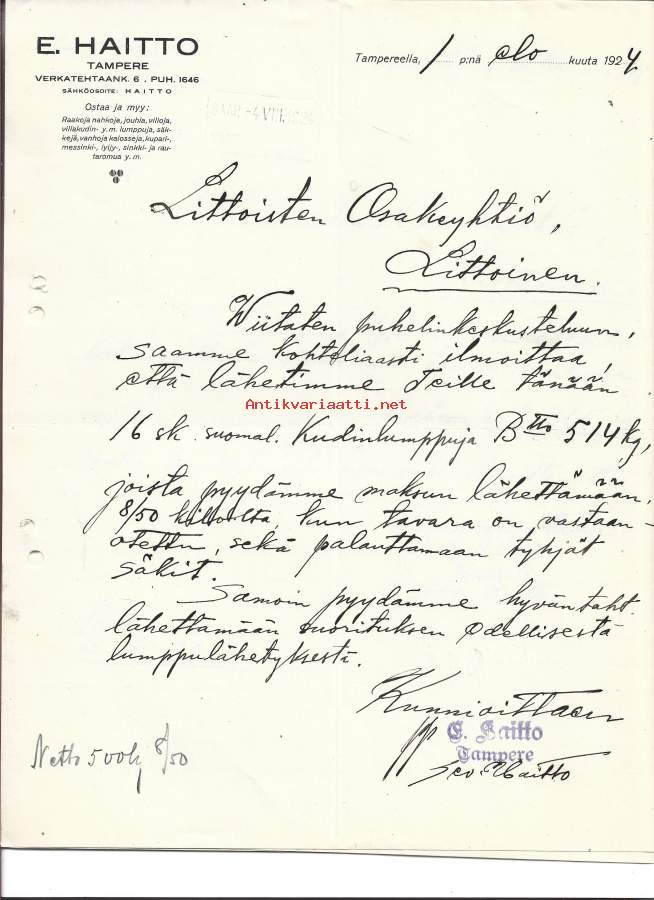 E. HAITTO
TAMPERE
VERKATEHTAANK. 6 . PUH. 1646
SÄHKÖOSOITE: HAITTO
Ostaa ja myy:
Raakoja nahkoja, jouhia, villoja,
villakudin- y.m. lumppuja, säk-
kejä, vanhoja kalosseja, kupari-,
messinki-, lyijy-, sinkki- ja rau-
taromua y. m.
Tampereella, 1 p:nä elo kuuta 1924
SAAP. -4.VIII.1924
Littoisten Osakeyhtiö,
Littoinen.
Viitaten puhelinkeskusteluun,
saamme kohteliaasti ilmoittaa,
että lähetimme Teille tänään
Antikvariaatti.net
16 sk. suomal. Kudinlumppuja Btto 514 kg,
joista pyydämme maksun lähettämään,
8/50 kilolta, kun tavara on vastaan-
otettu, sekä palauttamaan tyhjät
säkit.
Samoin pyydämme hyväntaht.
lähettämään suorituksen edellisestä
lumppulähetyksestä.
Kunnioittaen
pp E. Haitto
Tampere
Haitto
Netto 500k 8/50